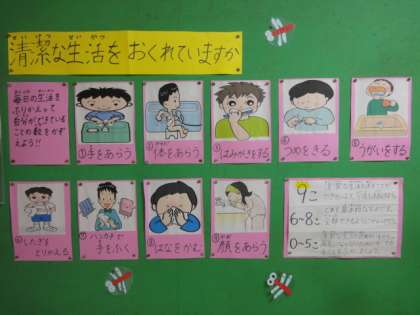 せい けつ せい かつ
清潔な生活を おくれていますか
毎日の生活を
ふりかえって
自分ができている
ことの数をかぞ
えよう!!
①手をあらう
②体をあらう
③はみがきをする
④つめをきる
⑤うがいをする
⑥したぎを
とりかえる
⑦ハンカチで
手をふく
⑧はなをかむ
⑨顔をあらう
9こ
6~8こ
0~5こ